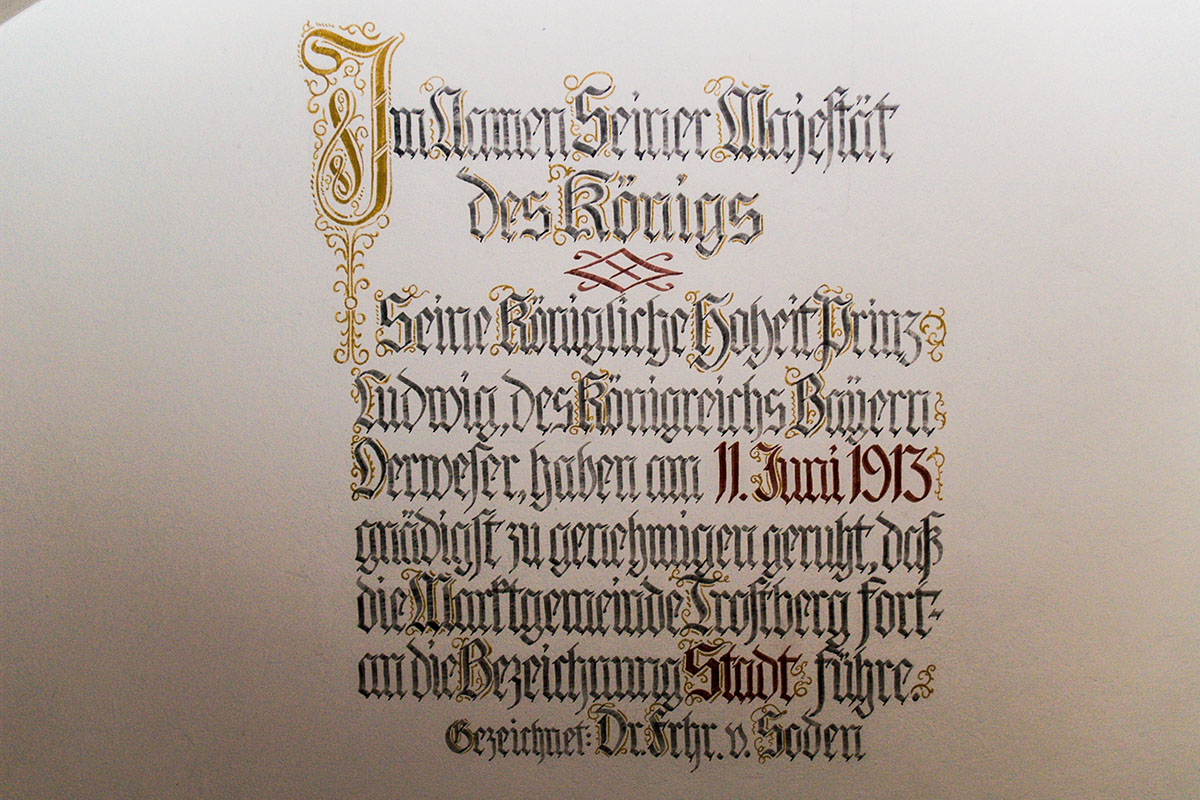 Im Namen Seiner Majestät
des Königs
Seine Königliche Hoheit Prinz
Ludwig, des Königreichs Bayern
Verweser, haben am 11. Juni 1913
gnädigst zu genehmigen geruht, daß
die Marktgemeinde Trostberg fort-
an die Bezeichnung Stadt führe.
Gezeichnet: Dr. Frhr. v. Soden